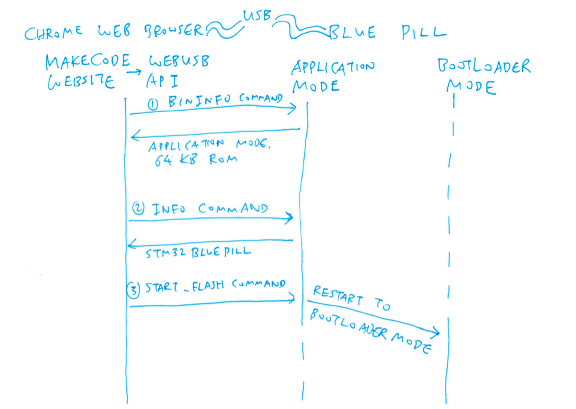 USB
CHROME WEB BROWSER
BLUE PILL
MAKECODE WEBSITE → WEBUSB API
APPLICATION MODE
BOOTLOADER MODE
① BININFO COMMAND
APPLICATION MODE,
64 KB ROM
② INFO COMMAND
STM32 BLUE PILL
③ START_FLASH COMMAND
RESTART TO
BOOTLOADER MODE